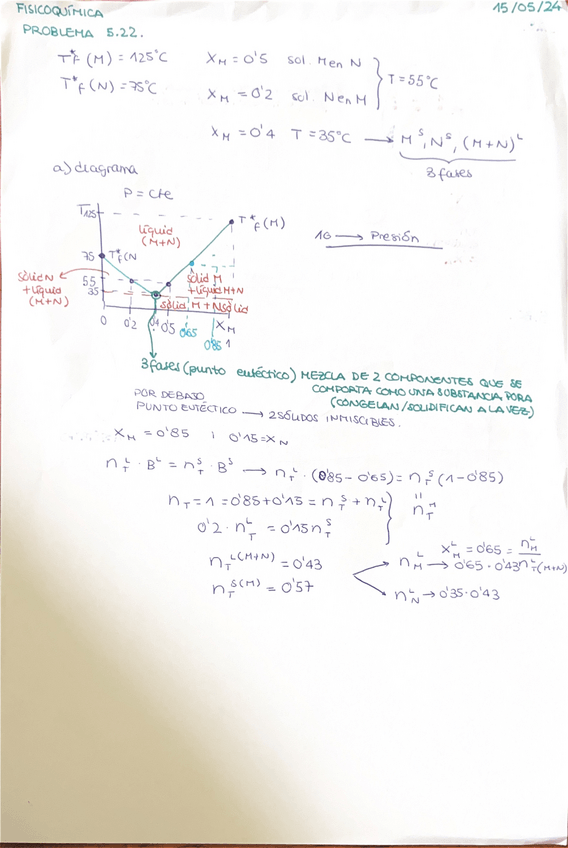 FISICOQUÍMICA
15/05/24
PROBLEMA 5.22.
T*F (M) = 125°C
XM = 0'5 sol. M en N
T*F (N) = 75°C
XM = 0'2 sol. N en M
T = 55°C
XM = 0'4 T = 35°C → M^S, N^S, (M+N)^L
3 fases
a) diagrama
P = cte
T
125
T*F (M)
líquid
(M+N)
1G → Presión
75
T*F (N
sólid N
+ líquid
(M+N)
sólid M
+ líquid M+N
55
35
sólid M + N sólid
0 0'2 0'4 0'5 0'65 0'85 1
XM
3 fases (punto eutéctico) MEZCLA DE 2 COMPONENTES QUE SE
COMPORTA COMO UNA SUBSTANCIA PURA
(CONGELAN/SOLIDIFICAN A LA VEZ)
POR DEBAJO
PUNTO EUTÉCTICO → 2 SÓLIDOS INMISCIBLES.
XM = 0'85 i 0'15 = XN
nT^L · B^L = nT^S · B^S → nT^L · (0'85 - 0'65) = nT^S (1 - 0'85)
nT = 1 = 0'85 + 0'15 = nT^S + nT^L
0'2 · nT^L = 0'15 nT^S
nT^M
nT^L(M+N) = 0'43
nT^S(M) = 0'57
XM^L = 0'65 = nM^L
nM^L → 0'65 · 0'43 nT^L(M+N)
nN^L → 0'35 · 0'43